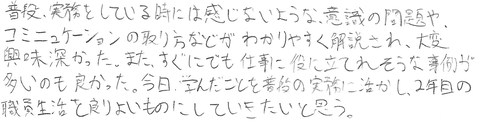 普段、実務をしている時には感じないような、意識の問題や、
コミュニケーションの取り方などがわかりやすく解説され、大変
興味深かった。また、すぐにでも仕事に役に立てれそうな事例が
多いのも良かった。今日、学んだことを普段の実務に活かし、2年目の
職員生活を良りよいものにしていきたいと思う。